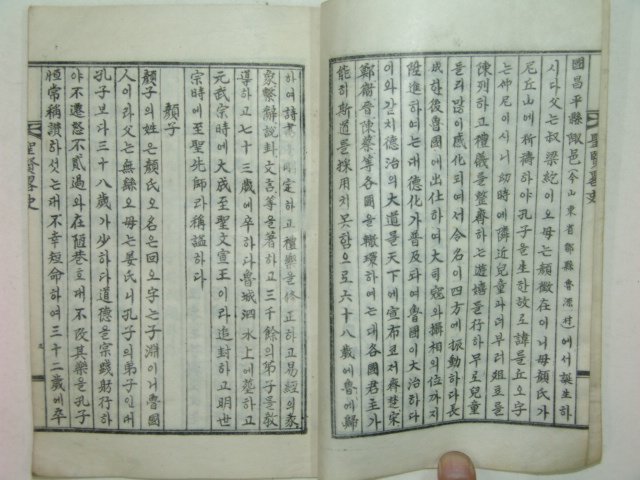 國昌平縣陬邑(今山東省鄒縣魯源村)에서誕生하
시다父는叔梁紇이오母는顔徵在이니母顔氏가
尼丘山에祈禱하야孔子를生한故로諱를丘오字
는仲尼이시니幼時에隣近兒童과더부러俎豆를
陳列하고禮儀를整齊하는遊嬉를行하무로兒童
들리많이感化되여서令名이四方에振動하다長
成한後魯國에出仕하여大司寇와攝相의位까지
陞進하여는대德化가普及되여魯國이大治하다
이와갇치德治의大道를天下에宣布코저齊楚宋
鄭衛晉陳蔡等各國을轍環하여는대各國君主가
能히斯道를採用치못함으로六十八歲에魯에歸
하여詩書를刪定하고禮樂을修正하고易經의彖
象繫辭說卦文言等을著하고三千餘의弟子를敎
導하고七十三歲에卒하다魯城泗水上에葬하고
元武宗時에大成至聖文宣王이라追封하고明世
宗時에至聖先師라稱謚하다
顔子
顔子의姓은顔氏오名은回오字는子淵이니魯國
人이라父는無繇오母는姜氏니孔子의弟子인대
孔子보다三十八歲가少하다道德을宗踐躬行하
야不遷怒不貳過와在陋巷호대不改其樂을孔子
恒常稱讚하섯는대不幸短命하여三十二歲에卒
聖賢畧史
聖賢畧史